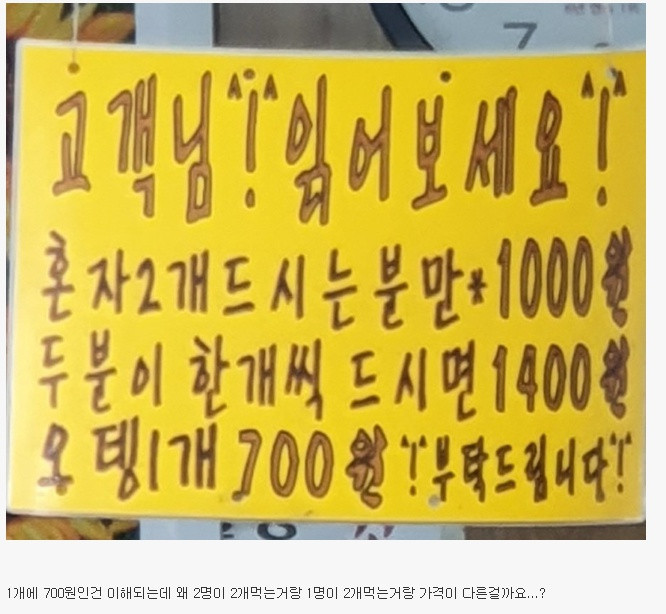 고객님^!^읽어보세요^!^
혼자2개드시는분만*1000원
두분이 한개씩 드시면1400원
오뎅1개 700원^!^부탁드립니다^!^
1개에 700원인건 이해되는데 왜 2명이 2개먹는거랑 1명이 2개먹는거랑 가격이 다른걸까요...?